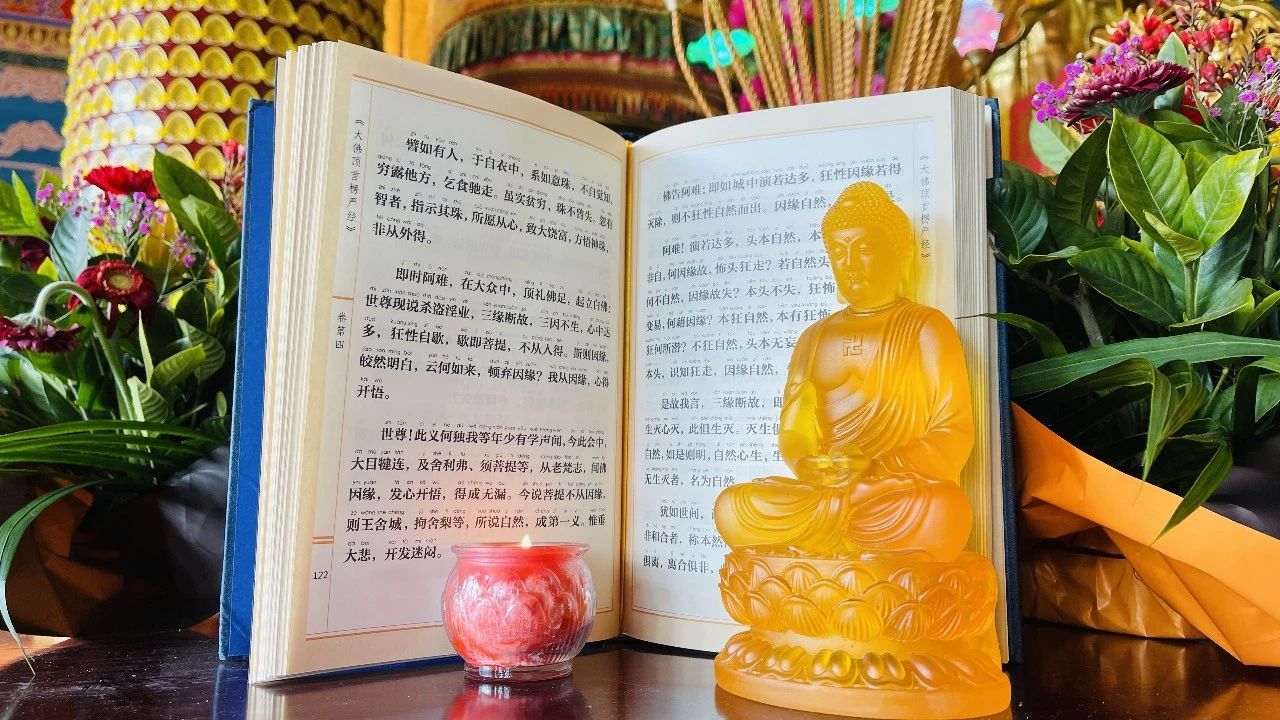 《大佛顶首楞严经》
卷第四
122
譬如有人，于自衣中，系如意珠，不自觉知，
穷露他方，乞食驰走。虽实贫穷，珠不曾失。忽有
智者，指示其珠，所愿从心，致大饶富，方悟神珠，
非从外得。
即时阿难，在大众中，顶礼佛足，起立白佛：
世尊现说杀盗淫业，三缘断故，三因不生，心中达
多，狂性自歇，歇即菩提，不从人得。斯则因缘，
皎然明白，云何如来，顿弃因缘？我从因缘，心得
开悟。
世尊！此义何独我等年少有学声闻，今此会中，
大目犍连，及舍利弗、须菩提等，从老梵志，闻佛
因缘，发心开悟，得成无漏。今说菩提不从因缘，
则王舍城，拘舍梨等，所说自然，成第一义。惟垂
大悲，开发迷闷。
佛告阿难：即如城中演若达多，狂性因缘若得
灭除，则不狂性自然而出。因缘自然，
阿难！演若达多，头本自然，本
非自，何因缘故，怖头狂走？若自然头
何不自然，因缘故失？本头不失，狂怖
变易，何藉因缘？本狂自然，本有狂怖
狂何所潜？不狂自然，头本无妄
本头，识知狂走，因缘自然，
是故我言，三缘断故，即
生灭心灭，此但生灭。灭生俱
自然，如是则明，自然心生，生
无生灭者，名为自然
犹如世间，
非和合者，称本然
俱离，离合俱非，
《大佛顶首楞严经》
卍